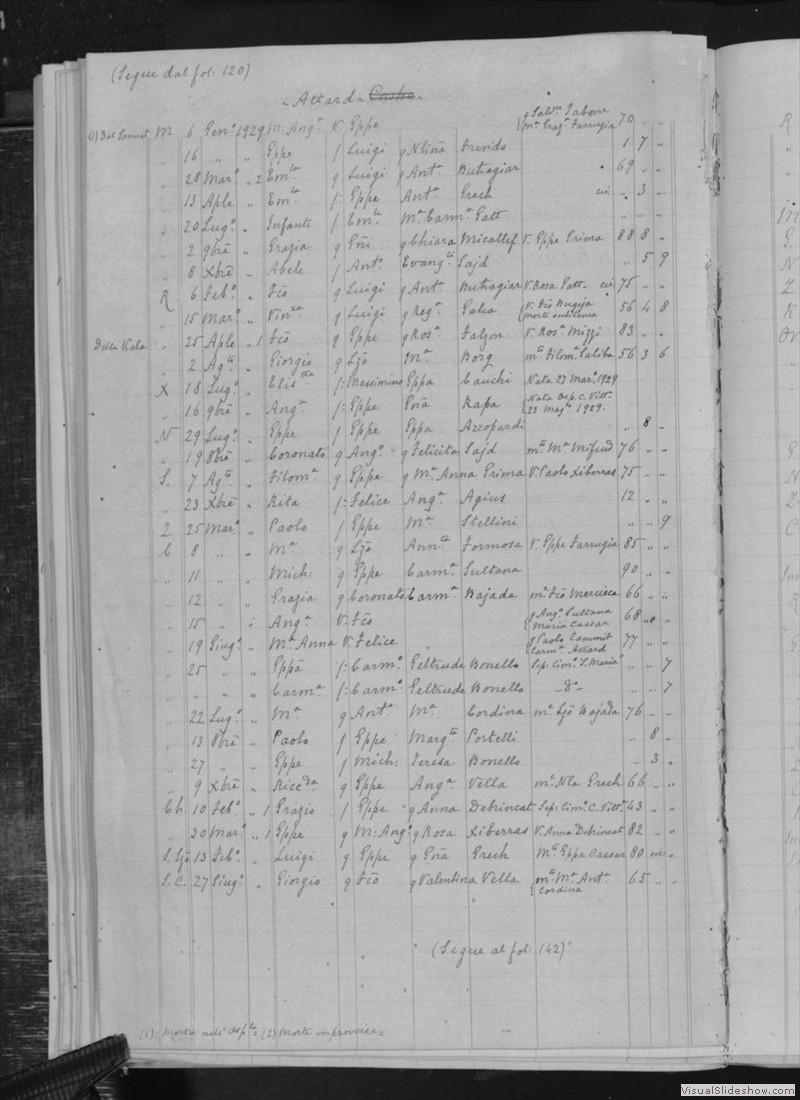 (Segue dal fol: 120)
- Attard - Castro -
(1) Dal Sannat M 6 Gen.º 1929 M: Angº V. Eppe { q Salvre Tabone mª Grazª Farrugia 70 " "
" 16 " " Eppe f Luigi q Ntina 1 7 "
" 28 Marº " 2 Emla q Luigi q Antª Buttigiar 69 "
" 13 Aple " Emla f: Eppe Antª Grech " 3 "
" 20 Lugº " Infante f Emle Mª Carmª Gatt " " "
" 2 9bre " Grazia q Gñi q Chiara Micallef V. Eppe Prima 88 8 "
" 8 Xbre " Abele f Antº Evangta Sajd " 5 9
R 6 Febº " Fcõ q Luigi q Antª Buttigiar V. Rosa Gatt 75 " "
" 15 Marº " Vinza q Luigi q Regª Galea { V. Fcõ Bugeja morte subitanea 56 4 8
Della Kala " 25 Aple " 1 Fcõ q Eppe q Rosª Falzon V. Rosª Mizzi 83 " "
" 2 Agto " Giorgio q Ljõ Mª Borg mto Filomª Saliba 56 3 6
X 18 Lugº " Elistta f: Massimino Eppa Cauchi Nata 27 Marº 1929
" 16 9bre " Angª f: Eppe Gña Rapa { Nata Osp. C. Vitt. 23 Magº 1929.
N 29 Lugº " Eppe f Eppe Eppa Azzopardi " 8 "
" 19 8bre " Coronato q Angº q Felicita Sajd mto Mª Mifsud 76 " "
S. 7 Agto " Filomª q Eppe q Mª Anna Prima V. Paolo Xiberras 75 " "
" 23 Xbre " Rita f: Felice Angª Agius 12 " "
Z 25 Marº " Paolo f Eppe Mª Stellini " " 9
C 8 " " Mª q Ljõ Annta Formosa V. Eppe Farrugia 85 " "
" 11 " " Mich: q Eppe Carmª Sultana 90 " "
" 12 " " Grazia q Coronato Carmª Bajada mª Fcõ Mercieca 66 " "
" 15 " " Angª V. Fcõ { q Angº Sultana Maria Cassar 68 " "
" 19 Giugº " Mª Anna V. Felice { q Paolo Zammit Carmª Attard 77 " "
" 25 " " Eppa f: Carmº Geltrude Bonello Sep: Cimº S. Maria " " 7
" " " " Carmª f: Carmº Geltrude Bonello -Dº- " " 7
" 22 Lugº " Mª q Antº Mª Cordina mª Ljõ Bajada 76 " "
" 13 8bre " Paolo f Eppe Margta Portelli " 8 "
" 27 " " Eppe f Mich: Teresa Bonello " 3 "
" 9 Xbre " Riccda q Eppe Angª Vella mª Nla Grech 66 " "
Ch. 10 Febº " 1 Grazio f Eppe q Anna Debrincat Sep: Cimº C. Vitt. 43 " "
" 30 Marº " 1 Eppe q M: Angº q Rosa Xiberras V. Anna Debrincat 82 " "
S. Ljõ 13 Febº " Luigi q Eppe q Gña Grech Mto Eppa Cassar 80 "
S. C. 27 Giugº " Giorgio q Fcõ q Valentina Vella { mto Mª Antª Cordina 65 " "
(Segue al fol: 142)
(1): Morta nell' Osple = (2) Morte improvisa =
VisualSlideshow.com